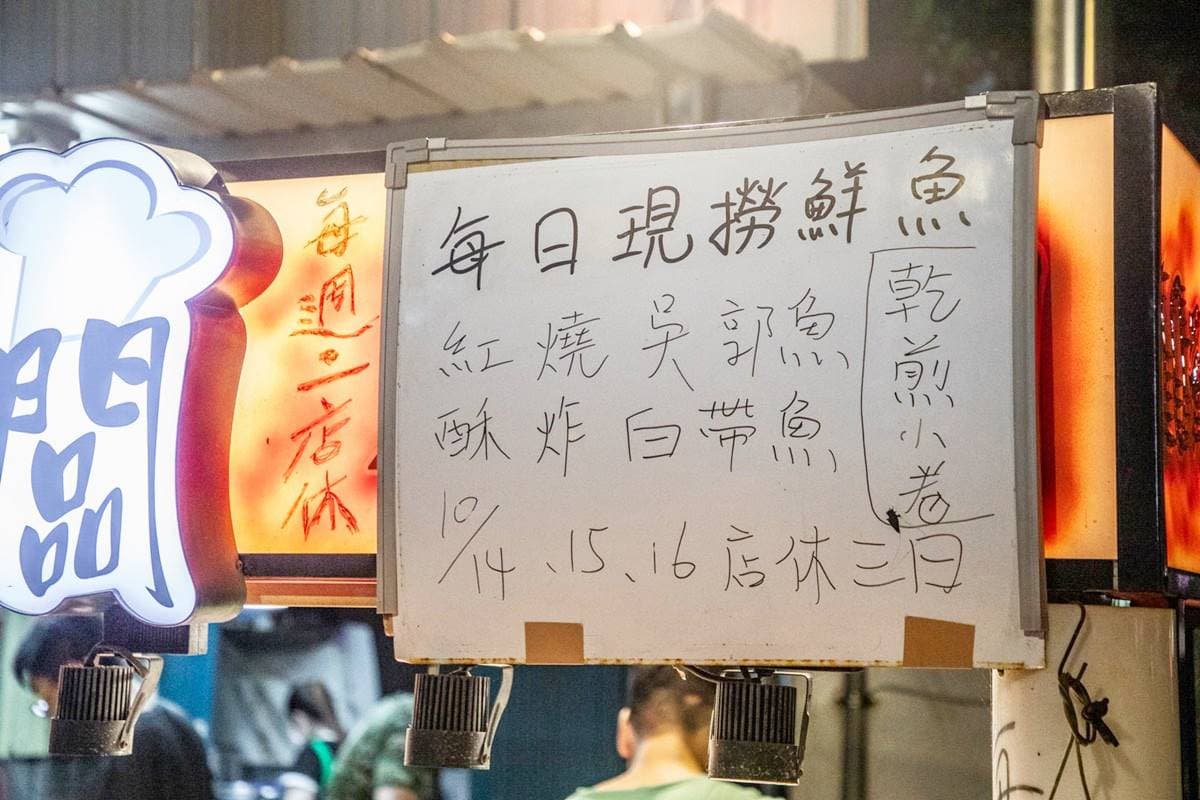 每日現撈鮮魚
紅燒吳郭魚
酥炸白帶魚
乾煎小卷
10/14、15、16店休三日
每週一.二店休